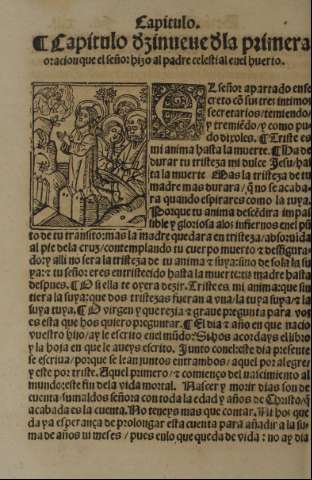 Capitulo.
¶ Capitulo dezinueve dela primera
oracion que el señor hizo al padre celestial en el huerto.
EL señor apartado en se
creto cõ sus tres intimos
secretarios/temiendo/
y tremiẽdo/y como pu
do dixoles. ¶ Triste es
mi anima hasta la muerte. ¶ Ha de
durar tu tristeza mi dulce Jesu/has
ta la muerte Mas la tristeza de tu
madre mas durara/ q̃ no se acaba
ra quando espirares como la tuya.
Porque tu anima descẽdira impas
sible y gloriosa alos infiernos enel pũ
to de tu transito: mas la madre quedara en tristeza/absorvida
al pie dela cruz/contemplando tu cuerpo muerto ⁊ desfigura-
do: y alli no sera la tristeza de tu anima ⁊ suya: sino de sola la su
ya: ⁊ tu señor eres entristecido hasta la muerte: tu madre hasta
despues. ¶ O si ella te oyera dezir. Triste es mi anima: que sin
tiera la suya: que dos tristezas fueran a una/la tuya suya ⁊ la
suya tuya. ¶ O virgen y que rezia ⁊ grave pregunta para vos
es esta que hos quiero preguntar. ¶ El dia ⁊ año en que nacio
vuestro hijo/ay le escrito enel mũdo: Si hos acordays el libro
y la hoja en que le aveys escrito. Junto conesse dia presente
se escriva/porque se lean juntos entrambos/aquel por alegre/
y este por triste. Aquel primero/⁊ comienço del nascimiento al
mundo: este fin dela vida mortal. Nascer y morir dias son de
cuenta: sumaldos señora con toda la edad y años de Christo/q̃
acabada es la cuenta. No teneys mas que contar. Ni hos que
da ya esperança de prolongar esta cuenta para añadir a la su
ma de años ni meses/ pues en lo que queda de vida: no ay dia